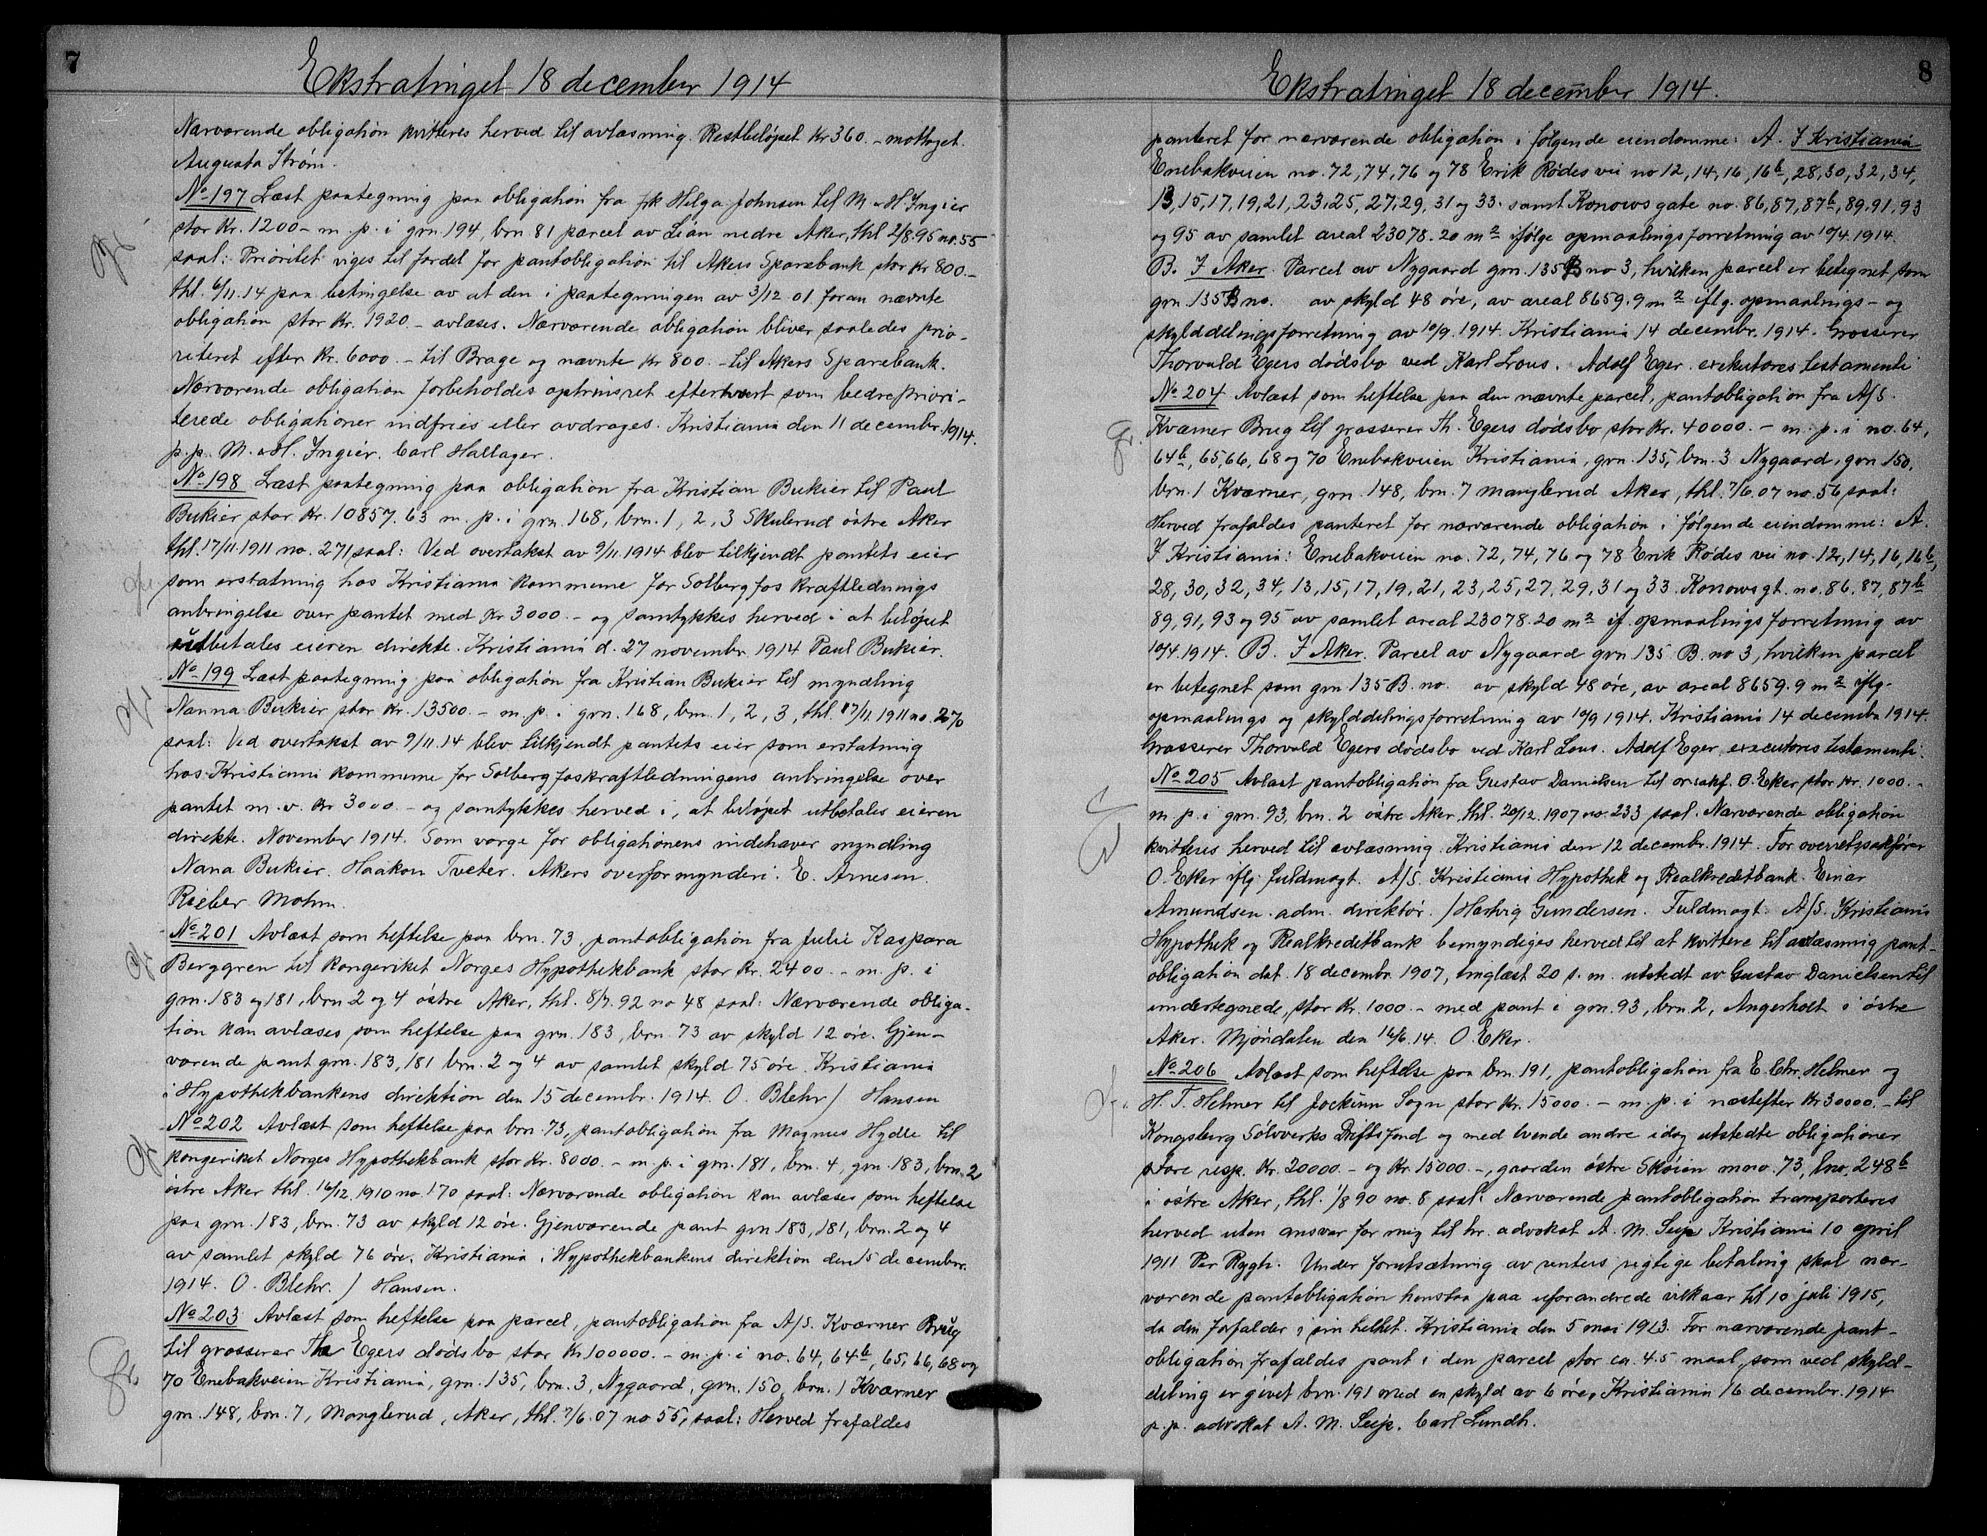 7
Ekstratinget 18 december 1914
Nærværende obligation kvitteres herved til avlæsning. Restbeløpet Kr 360.- mottaget.
Augusta Strøm.
No 197 Læst paategning paa obligation fra frk Helga Johnsen til M. &H. Ingier
stor Kr. 1200- m. p. i grn. 194, brn. 81 parcel av Lian nedre Aker, thl. 2/8.95 no. 55
saal: Prioritet viges til fordel for pantobligation til Akers Sparebank stor Kr 800.-
thl. 6/11.14 paa betingelse av at den i paategningen av 3/12 01 foran nævnte
obligation stor Kr. 1920.- avlæses. Nærværende obligation bliver saaledes prio-
riteret efter Kr. 6000.- til Brage og nævnte Kr 800.- til Akers Sparebank.
Nærværende obligation forbeholdes optrinsret efterhvert som bedre priori-
terede obligationer indfries eller avdrages. Kristiania den 11 decembr. 1914.
p.p. M. &H. Ingier. Carl Hallager.
No 198 Læst paategning paa obligation fra Kristian Bukier til Paul
Bukier stor Kr. 10857.63 m. p. i grn. 168, brn. 1, 2, 3 Skulerud østre Aker
thl. 17/11.1911 no. 271 saal: Ved overtakst av 9/11.1914 blev tilkjendt pantets eier
som erstatning hos Kristiania kommune for Solbergfos kraftlednings
anbringelse over pantet med Kr 3000.- og samtykkes herved i at beløpet
utbetales eieren direkte. Kristiania d. 27 novembr 1914 Paul Bukier.
No 199 Læst paategning paa obligation fra Kristian Bukier til myndling
Nanna Bukier stor Kr. 13500.- m. p. i grn. 168, brn. 1, 2, 3, thl. 17/11 1911 no. 270
saal: Ved overtakst av 9/11.14 blev tilkjendt pantets eier som erstatning
hos Kristiania kommune for Solbergfoskraftledningens anbringelse over
pantet m. v. Kr 3000.- og samtykkes herved i, at beløpet utbetales eieren
direkte. November 1914. Som verge for obligationens indehaver myndling
Nana Bukier. Haakon Tveter. Akers overformynderi. E. Arnesen.
Rieber Mohn.
No 201 Avlæst som heftelse paa brn. 73, pantobligation fra Julie Kaspara
Berggren til Kongeriket Norges Hypothekbank stor Kr. 2400.- m. p. i
grn. 183 og 181, brn. 2 og 4 østre Aker, thl. 8/7.92 no 48 saal: Nærværende obliga-
tion kan avlæses som heftelse paa grn. 183, brn. 73 av skyld 12 øre. Gjen-
værende pant grn. 183, 181 brn. 2 og 4 av samlet skyld 75 øre. Kristiania
i Hypothekbankens direktion den 15 decembr. 1914. O. Blehr / Hansen
No 202 Avlæst som heftelse paa brn. 73, pantobligation fra Magnus Hydle til
kongeriket Norges Hypothekbank stor Kr. 8000.- m. p. i grn. 181, brn. 4, grn. 183, brn. 2
østre Aker thl. 16/12. 1910 no. 170, saal: Nærværende obligation kan avlæses som heftelse
paa grn. 183, brn. 73 av skyld 12 øre. Gjenværende pant grn 183, 181, brn. 2 og 4
av samlet skyld 76 øre. Kristiania i Hypothekbankens direktion den 15 decembr.
1914. O. Blehr. / Hansen.
No 203 Avlæst som heftelse paa parcel, pantobligation fra A/S. Kværner Brug
til grosserer Th. Egers dødsbo stor Kr. 100000.- m. p. i no. 64, 64b, 65, 66, 68 og
70 Enebakveien Kristiania, grn. 135, brn. 3, Nygaard, grn. 150, brn. 1 Kværner
grn. 148, brn. 7, Manglerud, Aker, thl. 7/6.07 no 55, saal: Herved frafaldes
8
Ekstratinget 18 december 1914.
panteret for nærværende obligation i følgende eiendomme: A. I Kristiania
Enebakveien no. 72, 74, 76 og 78 Erik Rødes vei no 12, 14, 16, 16b, 28, 30, 32, 34,
13, 15, 17, 19, 21, 23, 25, 27, 29, 31 og 33. samt Konows gate no. 86, 87, 87b, 89, 91, 93
og 95 av samlet areal 23078.20 m2 ifølge opmaalingsforretning av 10/4.1914.
B. I Aker. Parcel av Nygaard grn. 135 B no 3, hvilken parcel er betegnet som
grn. 135 B no. av skyld 48 øre, av areal 8659.9 m2 iflg. opmaalings- og
skylddelingsforretning av 10/9. 1914. Kristiania 14 decembr. 1914. Grosserer
Thorvald Egers dødsbo ved Karl Lous. Adolf Eger. exekutores testamenti
No 204 Avlæst som heftelse paa den nævnte parcel, pantobligation fra A/S.
Kværner Brug til grosserer Th. Egers dødsbo stor Kr. 40000.- m. p. i no. 64,
64b, 65, 66, 68 og 70 Enebakveien Kristiania, grn. 135, brn. 3 Nygaard, grn 150,
brn. 1 Kværner, grn. 148, brn. 7 Manglerud Aker, thl. 7/6.07 no. 56 saal:
Herved frafaldes panteret for nærværende obligation i følgende eiendomme: A.
I Kristiania: Enebakveien no. 72, 74, 76 og 78 Erik Rødes vei no. 12, 14, 16, 16b,
28, 30, 32, 34, 13, 15, 17, 19, 21, 23, 25, 27, 29, 31 og 33. Konowsgt. no. 86, 87, 87b
89, 91, 93 og 95 av samlet areal 23078.20 m2 if. opmaalingsforretning av
10/4.1914. B. I Aker. Parcel av Nygaard grn 135 B. no 3, hvilken parcel
er betegnet som grn 135 B. no. av skyld 48 øre, av areal 8659.9 m2 iflg.
opmaalings og skylddelingsforretning av 10/9 1914. Kristiania 14 decembr 1914.
Grosserer Thorvald Egers dødsbo ved Karl Lous. Adolf Eger, executores testamenti.
No 205 Avlæst pantobligation fra Gustav Danielsen til or.sakf. O. Eker stor Kr. 1000.-
m p. i grn. 93, brn. 2 østre Aker, thl. 20/12. 1907 no. 233 saal. Nærværende obligation
kvitteres herved til avlæsning. Kristiania den 12 decembr. 1914. For overretssakfører
O. Eker iflg. fuldmagt. A/S. Kristiania Hypothek og Realkreditbank. Einar
Amundsen. adm. direktør. / Hedvig Gundersen. Fuldmagt. A/S. Kristiania
Hypothek og Realkreditbank bemyndiges herved til at kvittere til avlæsning pant-
obligation dat. 18 decembr. 1907, tinglæst 20 s. m. utstedt av Gustav Danielsen til
undertegnede, stor Kr. 1000.- med pant i grn. 93, brn. 2, Angerholt i østre
Aker. Mjøndalen den 16/6.14. O. Eker.
No 206 Avlæst som heftelse paa brn. 191, pantobligation fra E. Chr. Helmer og
H. T. Helmer til Jockum Sogn stor Kr. 15000.- m. p. i næstefter Kr 30000.- til
Kongsberg Sølvverks Driftsfond og med tvende andre idag utstedte obligationer
store resp. Kr. 20000.- og Kr. 15000.-, gaarden østre Skøien mno. 73, lno. 248b
i østre Aker, thl. 1/8 90 no. 8 saal: Nærværende pantobligation transporteres
herved uten ansvar for mig til hr. advokat A. M. Seip Kristiania 10 april
1911 Per Rygh. Under forutsætning av renters rigtige betaling skal nær-
værende pantobligation henstaa paa uforandrede vilkaar til 10 juli 1915,
da den forfalder i sin helhet. Kristiania den 5 mai 1913. For nærværende pant-
obligation frafaldes pant i den parcel stor ca. 4.5 maal, som ved skyld-
deling er givet brn. 191 med en skyld av 6 øre. Kristiania 16 decembr. 1914
p. p. advokat A. M. Seip. Carl Lundh.